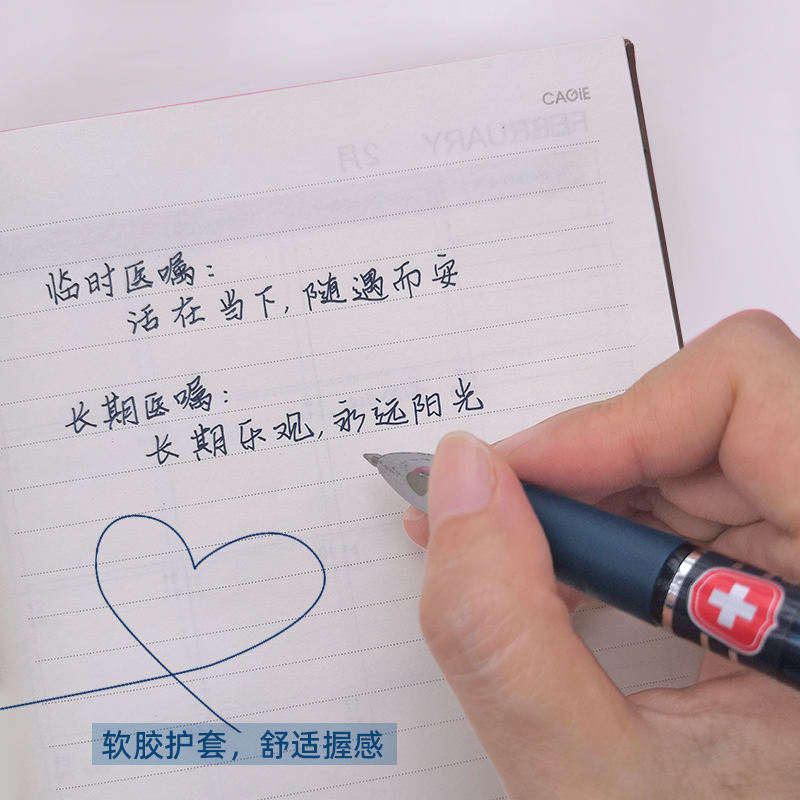 CAGiE
FEBRUARY 2月
临时医嘱：
活在当下，随遇而安
长期医嘱：
长期乐观，永远阳光
软胶护套，舒适握感